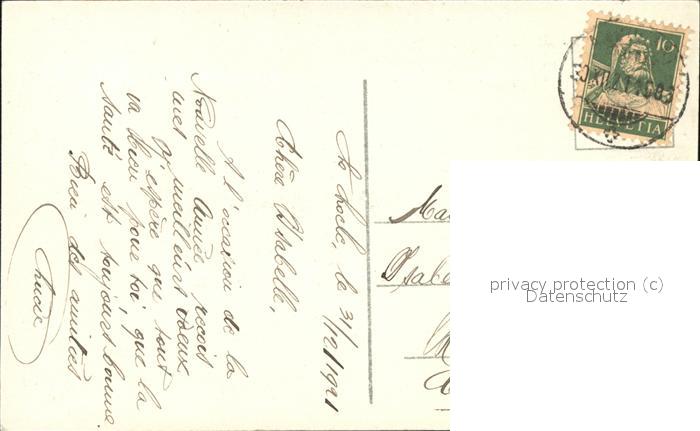 Le Locle, le 31/12/1921
Chère Isabelle,
A l'occasion de la
Nouvelle Année reçois
mes meilleurs voeux
J'espère que tout
va bien pour toi, que la
santé est toujours bonne.
Bien des amitiés
Lucie
10
HELVETIA
privacy protection (c)
Datenschutz